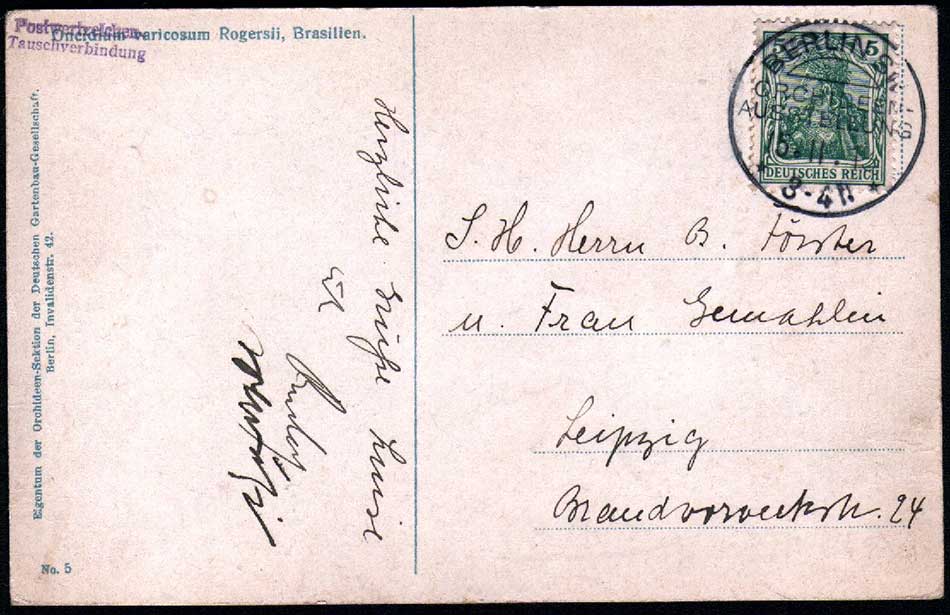 Postwertzeichen
Tauschverbindung
Oncidium varicosum Rogersii, Brasilien.
Eigentum der Orchideen-Sektion der Deutschen Gartenbau-Gesellschaft.
Berlin, Invalidenstr. 42.
No. 5
Herzliche Grüße Luise
Rudolf
BERLIN
ORCHIDEEN
AUSSTELLUNG
3-4N
5 5
DEUTSCHES REICH
S. H. Herrn B. Förster
u. Frau Gemahlin
Leipzig
Brandvorwerkstr. 24